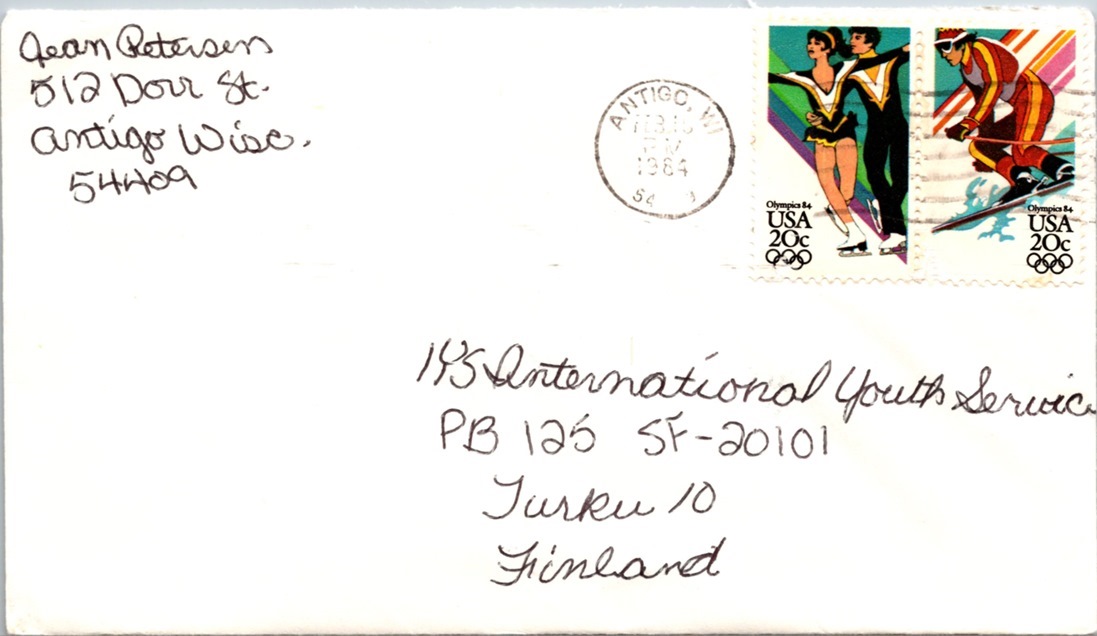 Jean Petersen
512 Dorr St.
Antigo Wisc.
54409
ANTIGO, WI
PM
1984
54
Olympics 84
USA
20c
Olympics 84
USA
20c
IYS International Youth Service
PB 125 SF-20101
Turku 10
Finland